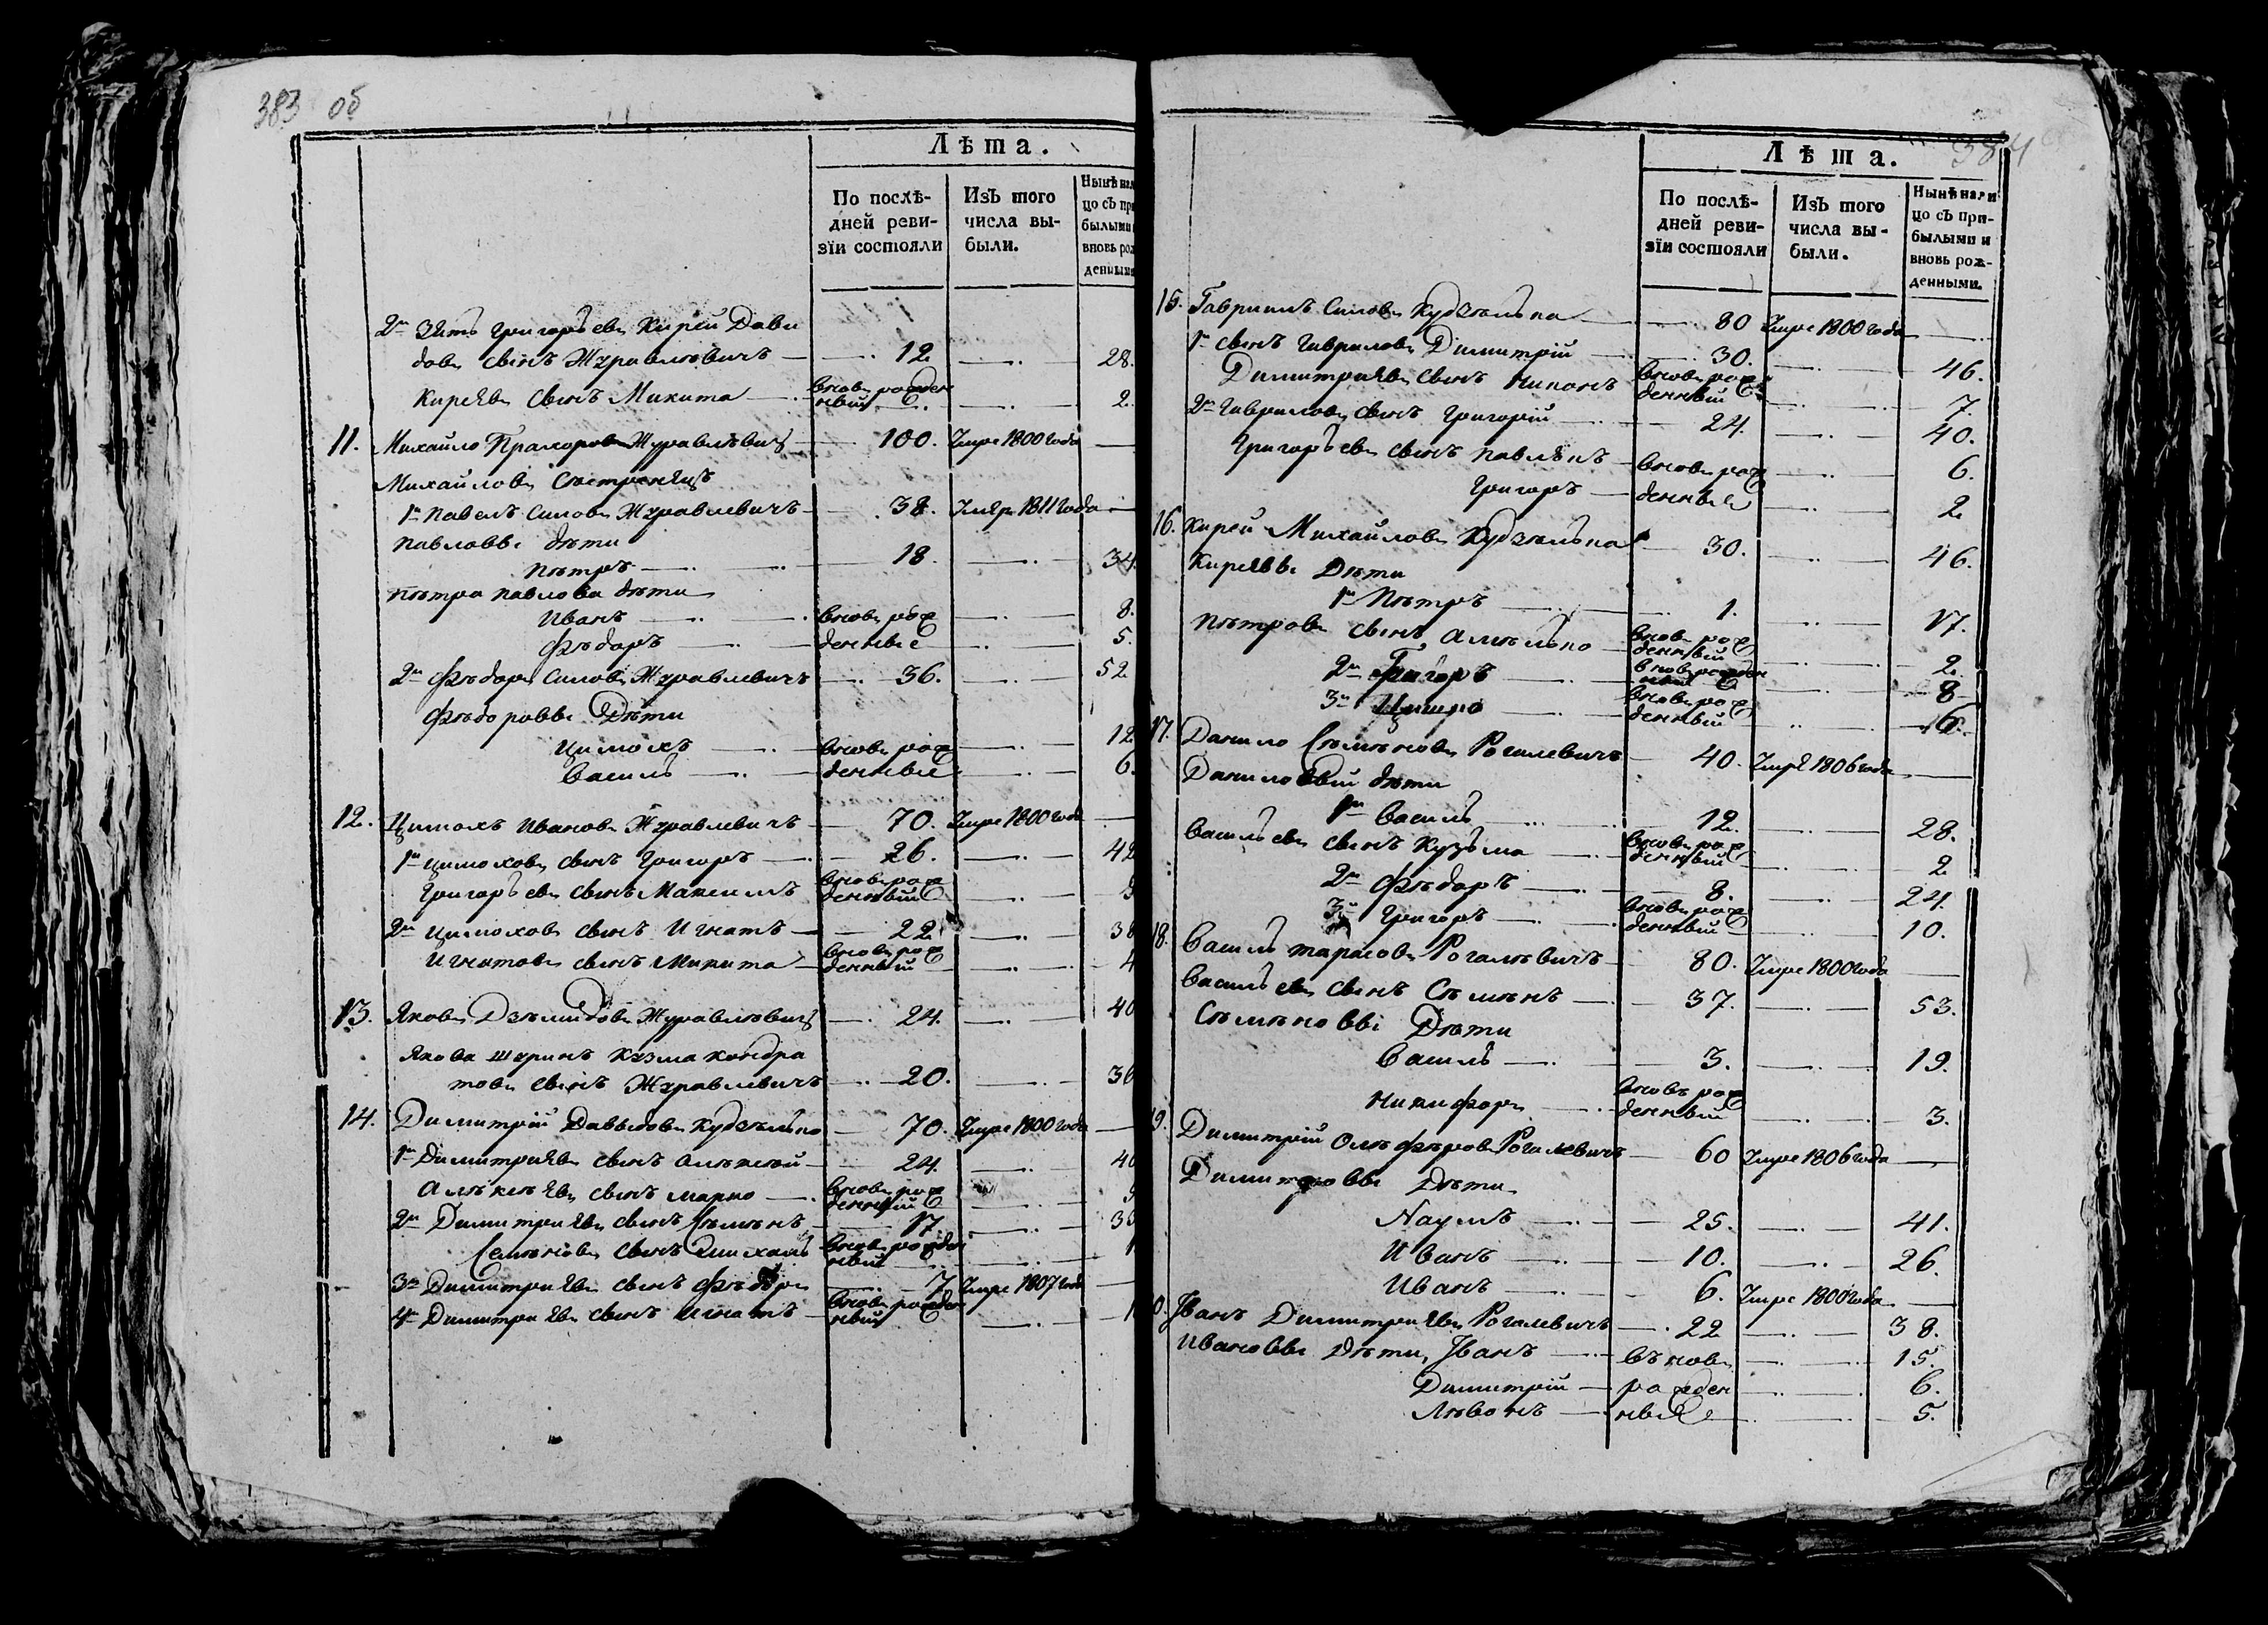 383 об
Лѣта.
По послѣ-
дней реви-
зїи состояли
Изъ того
числа вы-
были.
Нынѣ нал
цо съ при
былыми
вновь рож
денными
2й Зять Григорьевъ Кирей Дави
довъ сынъ Журавлевичъ — 12 — 28.
Киреявъ сынъ Микита — вновь рожден
ный — 2.
11. Михайло Прахоровъ Журавлѣвич — 100. Умре 1800 года —
Михайловъ Сѣстренецъ
1й Павелъ Силовъ Журавлевичъ — 38. Умре 1811 года —
Павловы дѣти
Пѣтръ — 18. — 34.
Пѣтра Павлова дѣти
Иванъ — вновь рож — 8.
Фѣдоръ — денные — 5.
2й Фѣдоръ Силовъ Журавлевичъ — 36. — 52
Фѣдоровы Дѣти
Цимохъ — вновь рож — 12
Василь — денные — 6.
12. Цимохъ Ивановъ Журавлевичъ — 70. Умре 1800 года —
1й Цимоховъ сынъ Григоръ — 26. — 42
Григорьевъ сынъ Максимъ — вновь рож
денный —
2й Цимоховъ сынъ Игнатъ — 22 — 38
Игнатовъ сынъ Микита — вновь рож
денный — 4
13. Яковъ Дзѣмидовъ Журавлѣвич — 24. — 40
Якова шуринъ Кузма Кондра
товъ сынъ Журавлевичъ — 20. — 36
14. Димитрій Давыдовъ Кудзѣлько — 70. Умре 1800 года —
1й Димитріявъ сынъ Алѣксѣй — 24. — 40
Алѣксѣявъ сынъ Марко — вновь рож
денный —
2й Димитріявъ сынъ Сѣмѣнъ — 17. — 33
Семѣновъ сынъ Михалъ вновь рожден
ный —
3й Димитріявъ сынъ Фѣдоръ — 7 Умре 1807 года —
4й Димитріявъ сынъ Игнатъ — вновь рожден
ный — 1
384
Лѣта.
По послѣ-
дней реви-
зїи состояли
Изъ того
числа вы-
были.
Нынѣ нали
цо съ при-
былыми и
вновь рож-
денными.
15. Гавриилъ Силовъ Кудзѣлька — 80 Умре 1800 года —
1й сынъ Гавриловъ Димитрій — 30. — 46.
Димитріявъ сынъ Никонъ вновь рож
денный — 7.
2й Гавриловъ сынъ Григорій — 24. — 40.
Григорьевъ сынъ Павлюкъ — вновь рож — 6.
Григоръ — денные — 2
16. Кирей Михайловъ Кудзѣлька — 30. — 46.
Киреявы Дѣти
1й Пѣтръ — 1. — 17.
Пѣтровъ сынъ Амѣлько — вновь рож
денный — 2.
2й Григоръ — вновь рожден
ный — 8
3й — вновь рож
денный — 6.
17. Данило Сѣмѣновъ Рогалевичъ — 40. Умре 1806 года —
Даниловы дѣти
1й Василь — 12. — 28.
Васильевъ сынъ Кузьма — вновь рож
денный — 2
2й Фѣдоръ — 8. — 24.
3й Григоръ — вновь рож
денный — 10.
18. Василь Тарасовъ Рогалѣвичъ — 80. Умре 1800 года —
Васильевъ сынъ Сѣмѣнъ — 37. — 53.
Сѣмѣновы Дѣти
Василь — 3. — 19.
Никифоръ — вновь рож
денный — 3.
9. Димитрій Олѣфѣровъ Рогалевичъ — 60 Умре 1806 года —
Димитровы Дѣти
Наумъ — 25. — 41.
Иванъ — 10. — 26.
Иванъ — 6. Умре 1800 года —
0. Іванъ Димитріявъ Рогалевичъ — 22 — 38.
Ивановы Дѣти, Іванъ — въновь — 15.
Димитрій — рожден — 6.
Лѣвонъ — ные — 5.